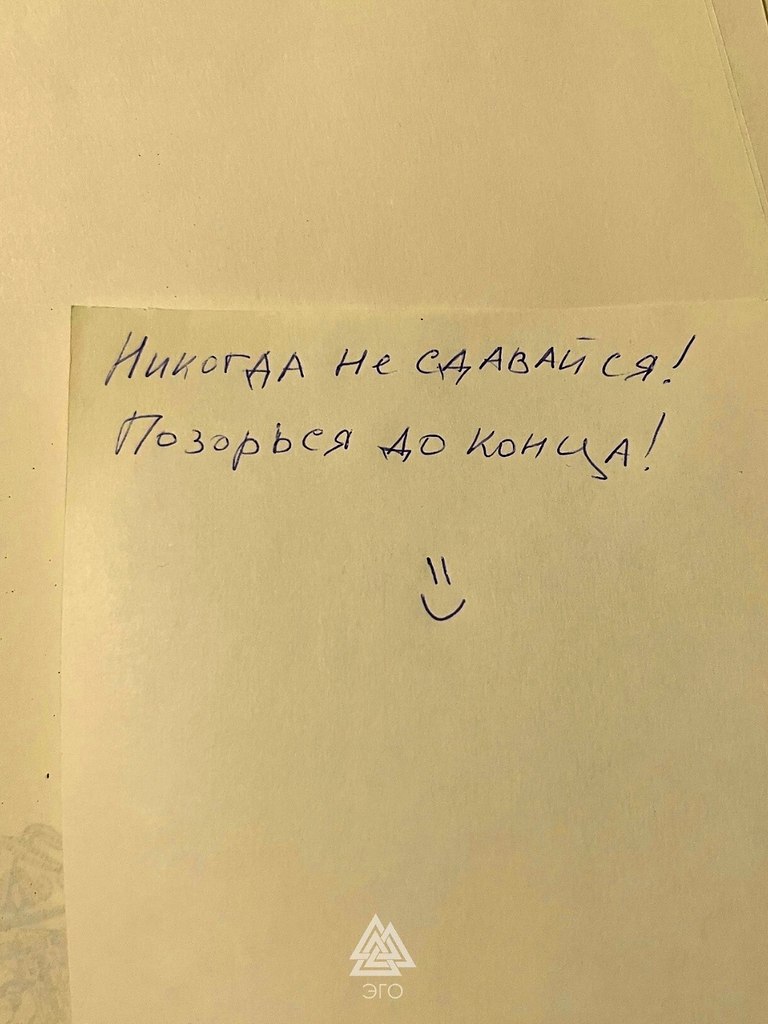 Никогда не сдавайся!
Позорься до конца!
ЭГО